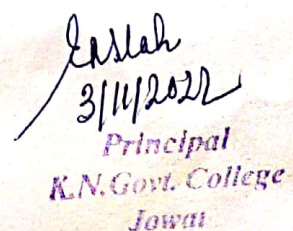 3/11/2022
Principal
K.N.Govt. College
Jowai